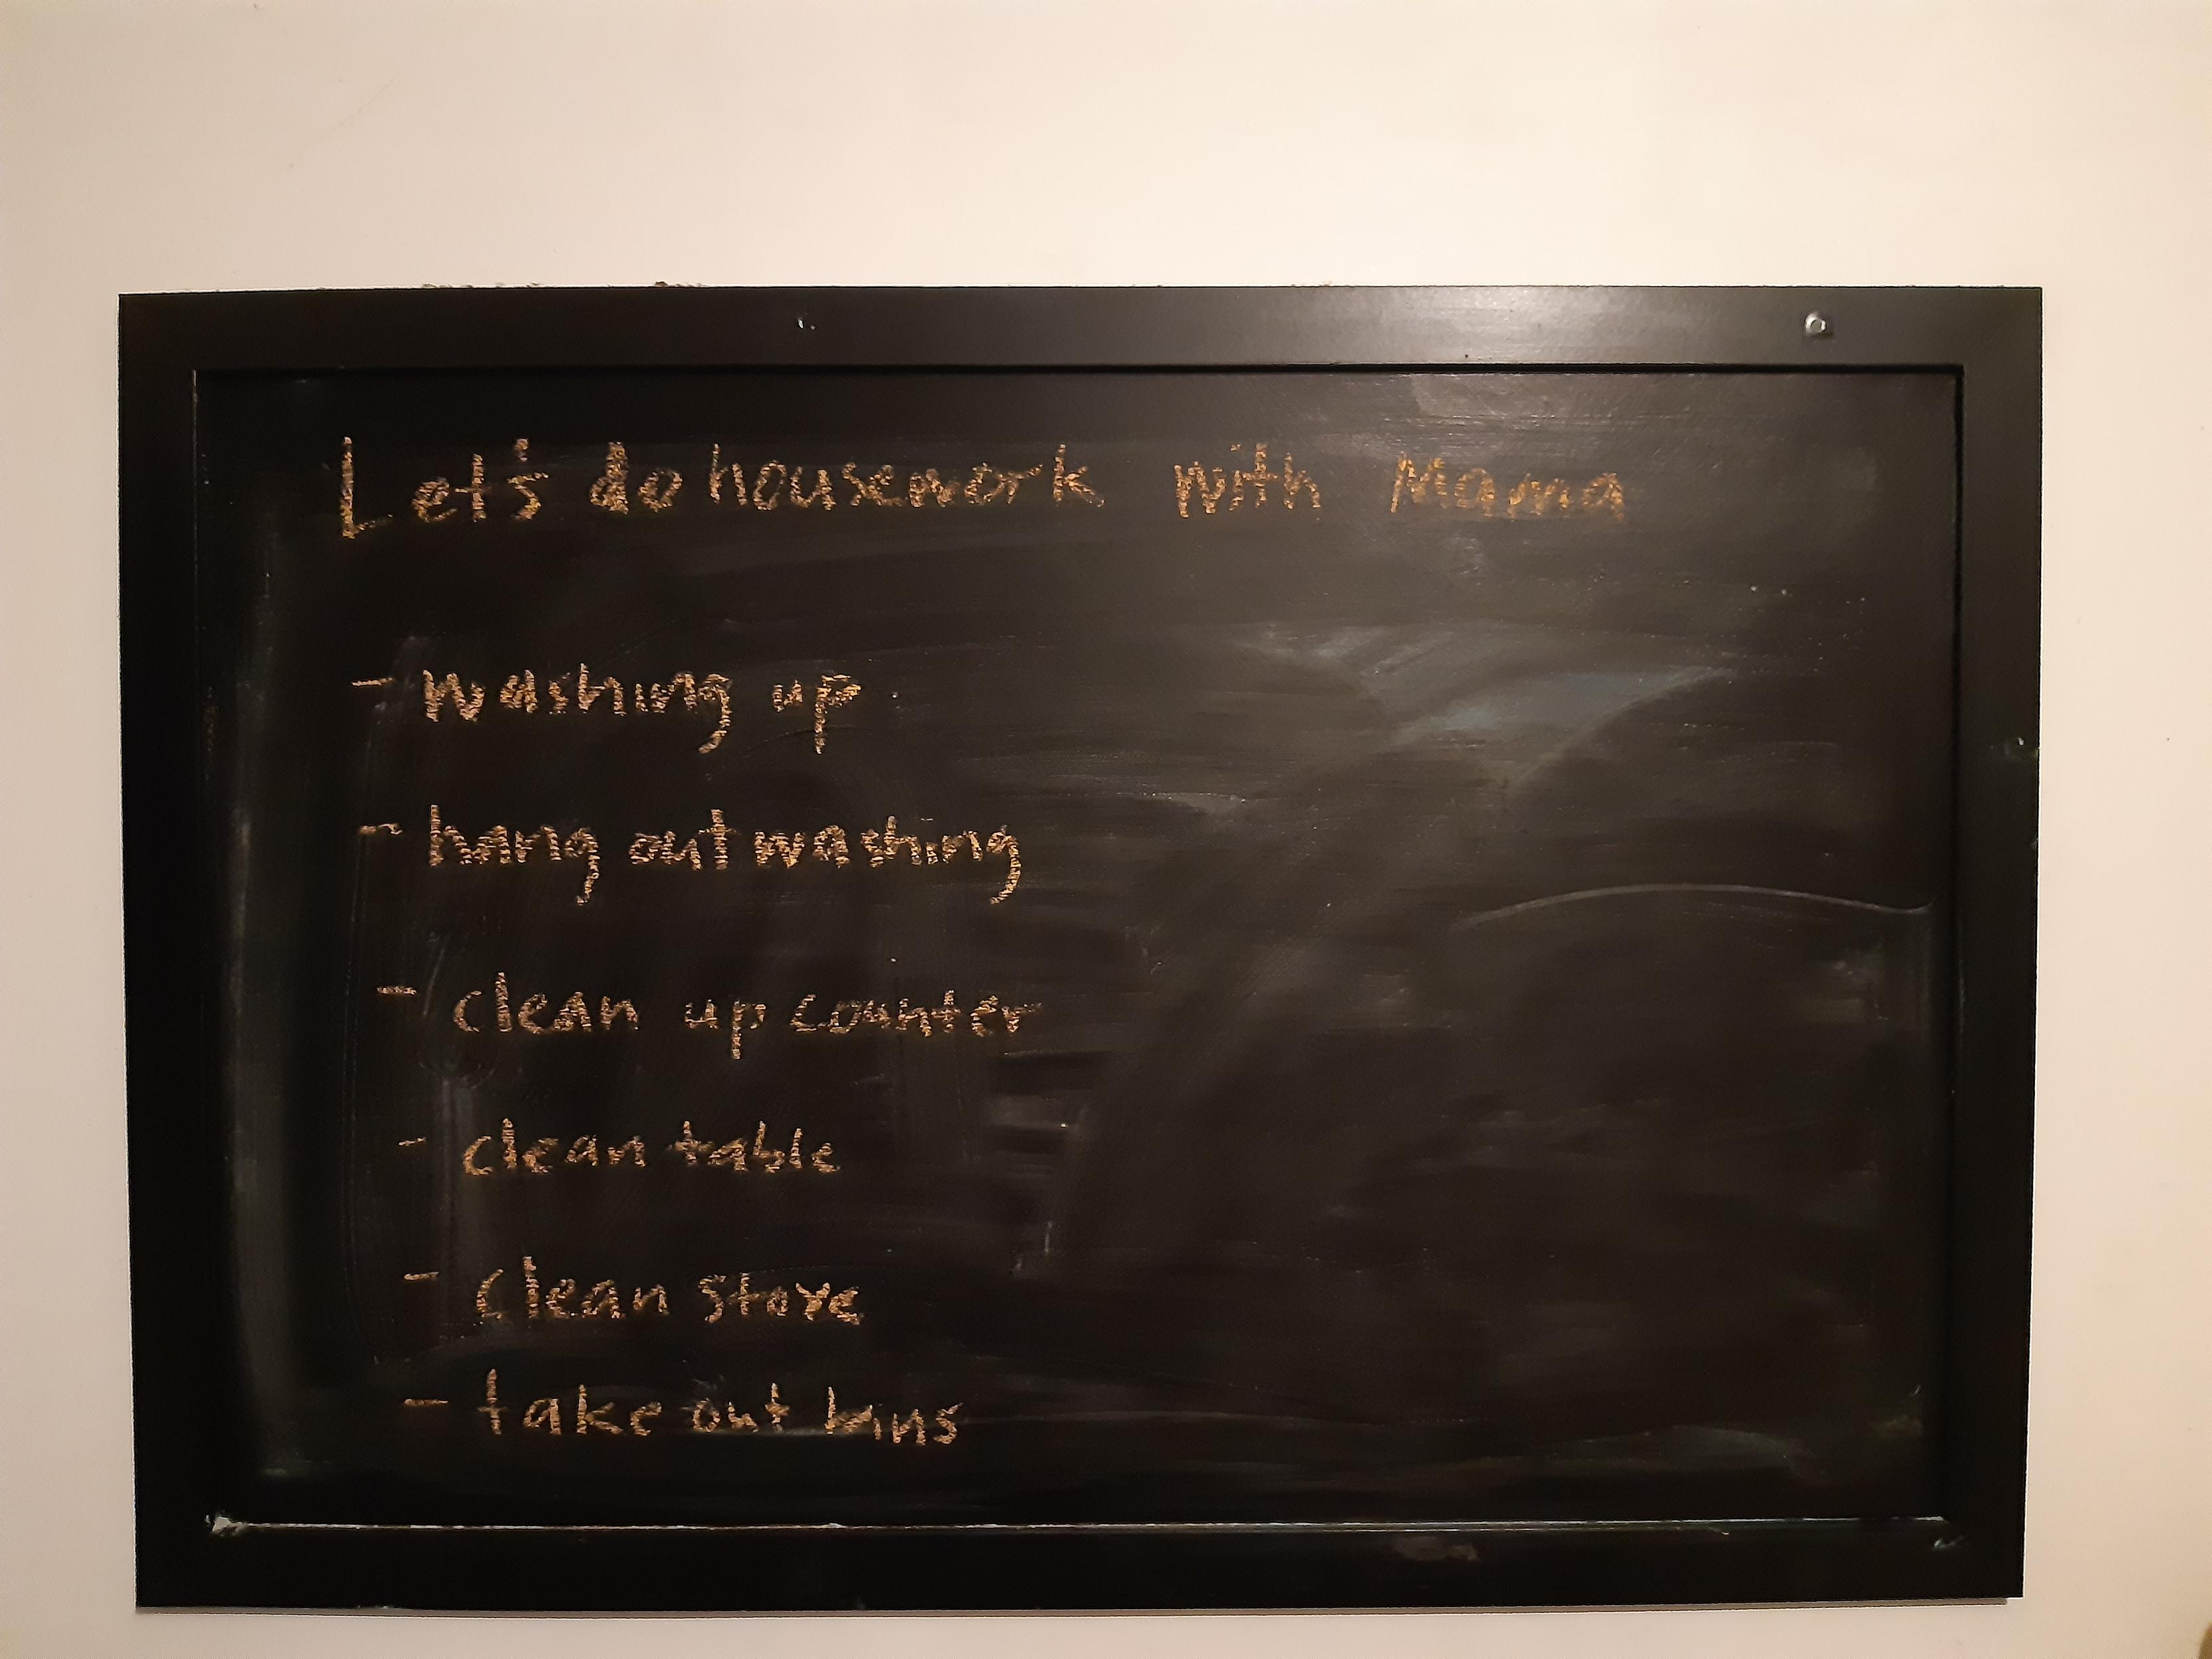 Let's do housework with Mama
- washing up
- hang out washing
- clean up counter
- clean table
- clean stove
- take out bins